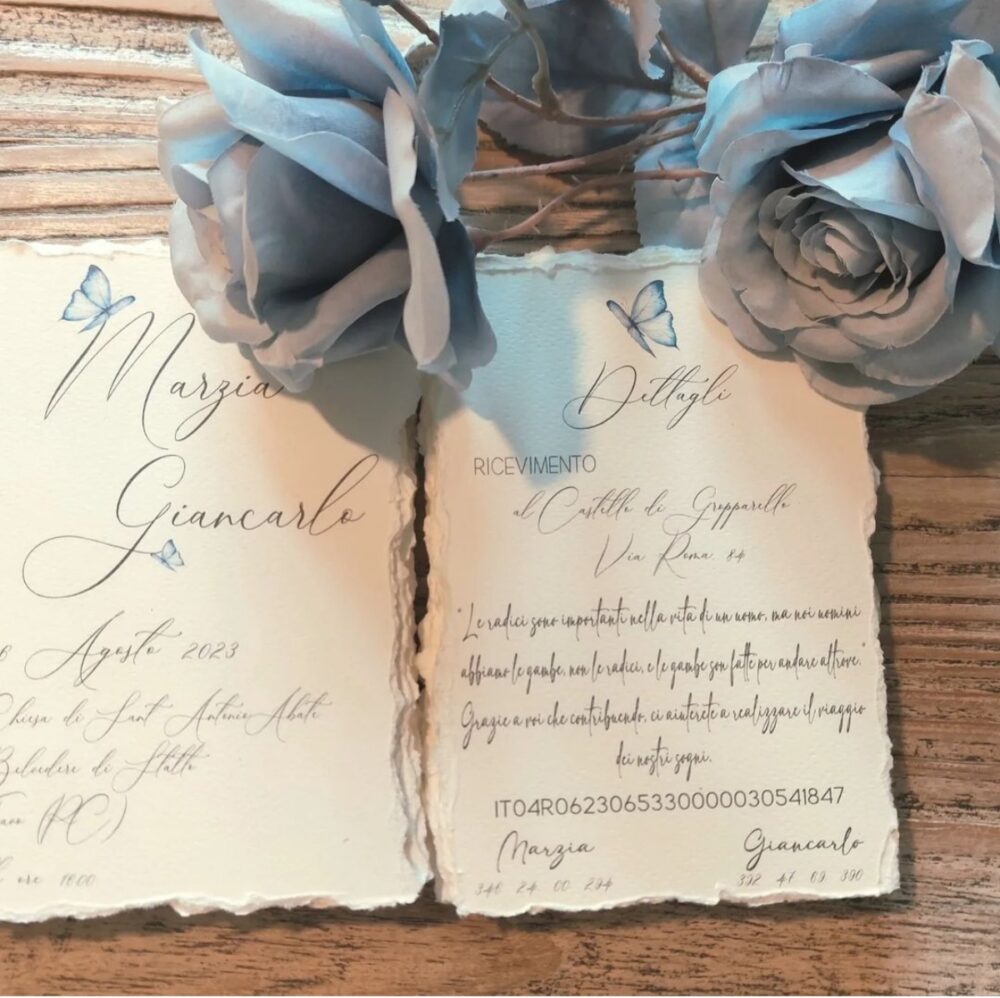 Marzia
Giancarlo
6 Agosto 2023
Chiesa di Sant Antonio Abate
Belvedere di
(PC)
ore 16:00
Dettagli
RICEVIMENTO
al Castello di Gropparello
Via Roma 84
"Le radici sono importanti nella vita di un uomo, ma noi uomini
abbiamo le gambe, non le radici, e le gambe son fatte per andare altrove."
Grazie a voi che contribuendo, ci aiuterete a realizzare il viaggio
dei nostri sogni.
IT04R0623065330000030541847
Marzia Giancarlo
346 24 00 294 392 47 69 390